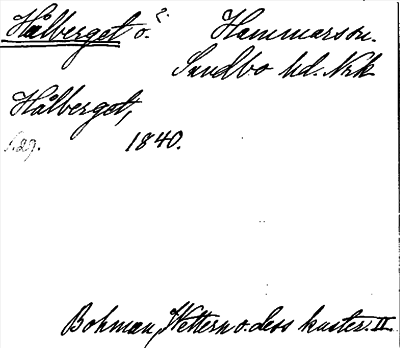 Hålberget o. ?. Hammarson.
Sundbo hd. Nrk.
Hålberget,
s.29. 1840.
Bohman, Wettern o. dess kuster. II.